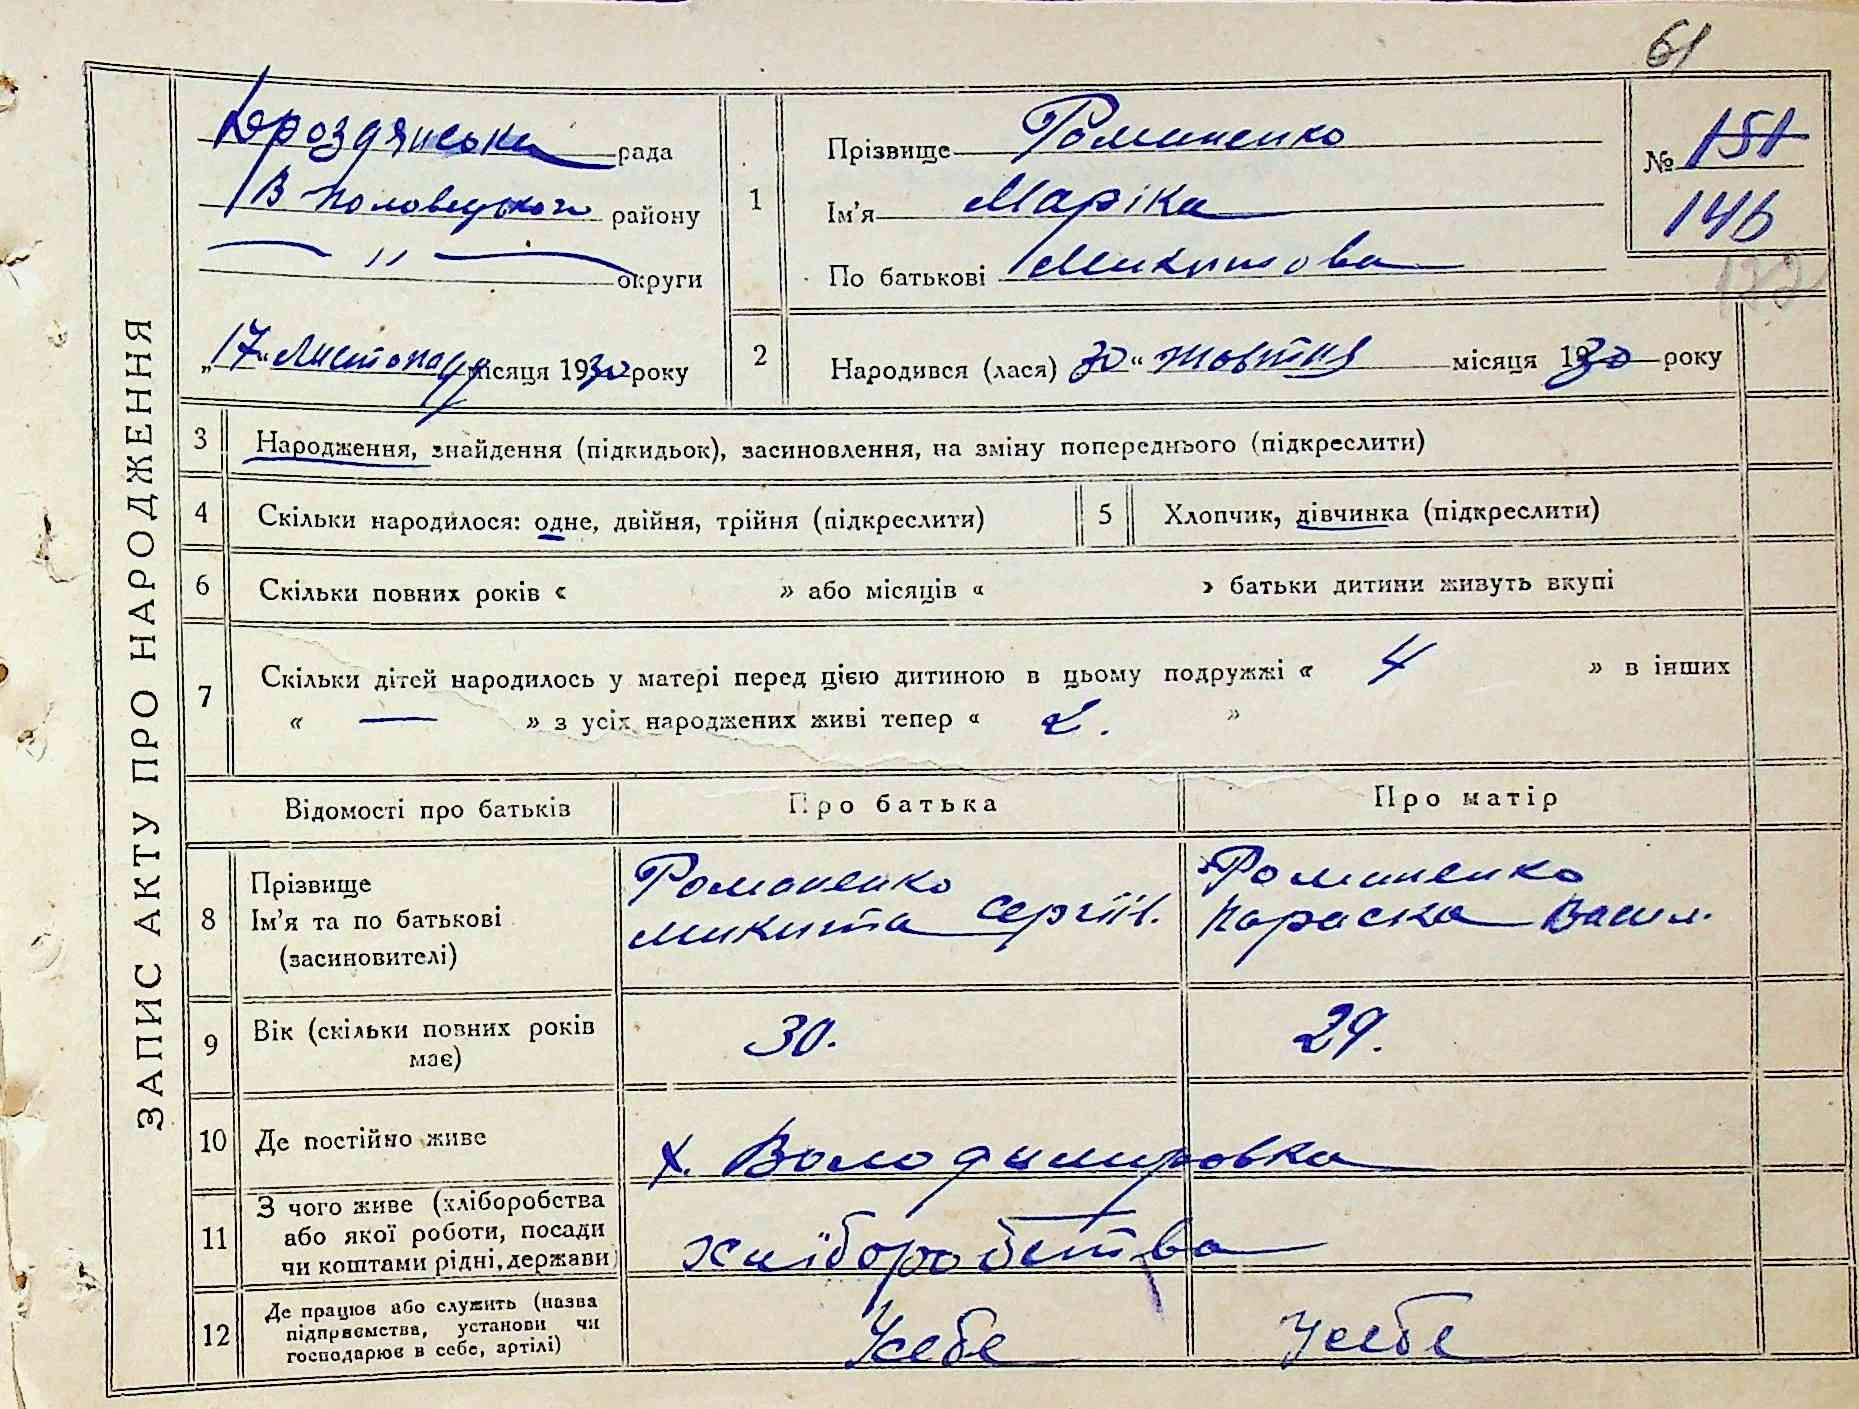 61
ЗАПИС АКТУ ПРО НАРОДЖЕННЯ
Дроздянська рада
В Половецького району
— " — округи
„17“ Листопаду місяця 1930 року
1
Прізвище Романенко
Ім'я Маріка
По батькові Микитова
№ 151
146
122
2
Народився (лася) 30“ жовтня місяця 1930 року
3 Народження, знайдення (підкидьок), засиновлення, на зміну попереднього (підкреслити)
4 Скільки народилося: одне, двійня, трійня (підкреслити)
5 Хлопчик, дівчинка (підкреслити)
6 Скільки повних років « » або місяців « » батьки дитини живуть вкупі
7 Скільки дітей народилось у матері перед цією дитиною в цьому подружжі « 4 » в інших
« — » з усіх народжених живі тепер « 2. »
Відомості про батьків Про батька Про матір
8
Прізвище
Ім'я та по батькові
(засиновителі)
Романенко
Микита Сергійов.
Романенко
Параска Васил.
9 Вік (скільки повних років
має)
30. 29.
10 Де постійно живе х. Володимировка
11
З чого живе (хліборобства
або якої роботи, посади
чи коштами рідні, держави)
хліборобства
12
Де працює або служить (назва
підприємства, установи чи
господарює в себе, артілі)
Усебе Усебе